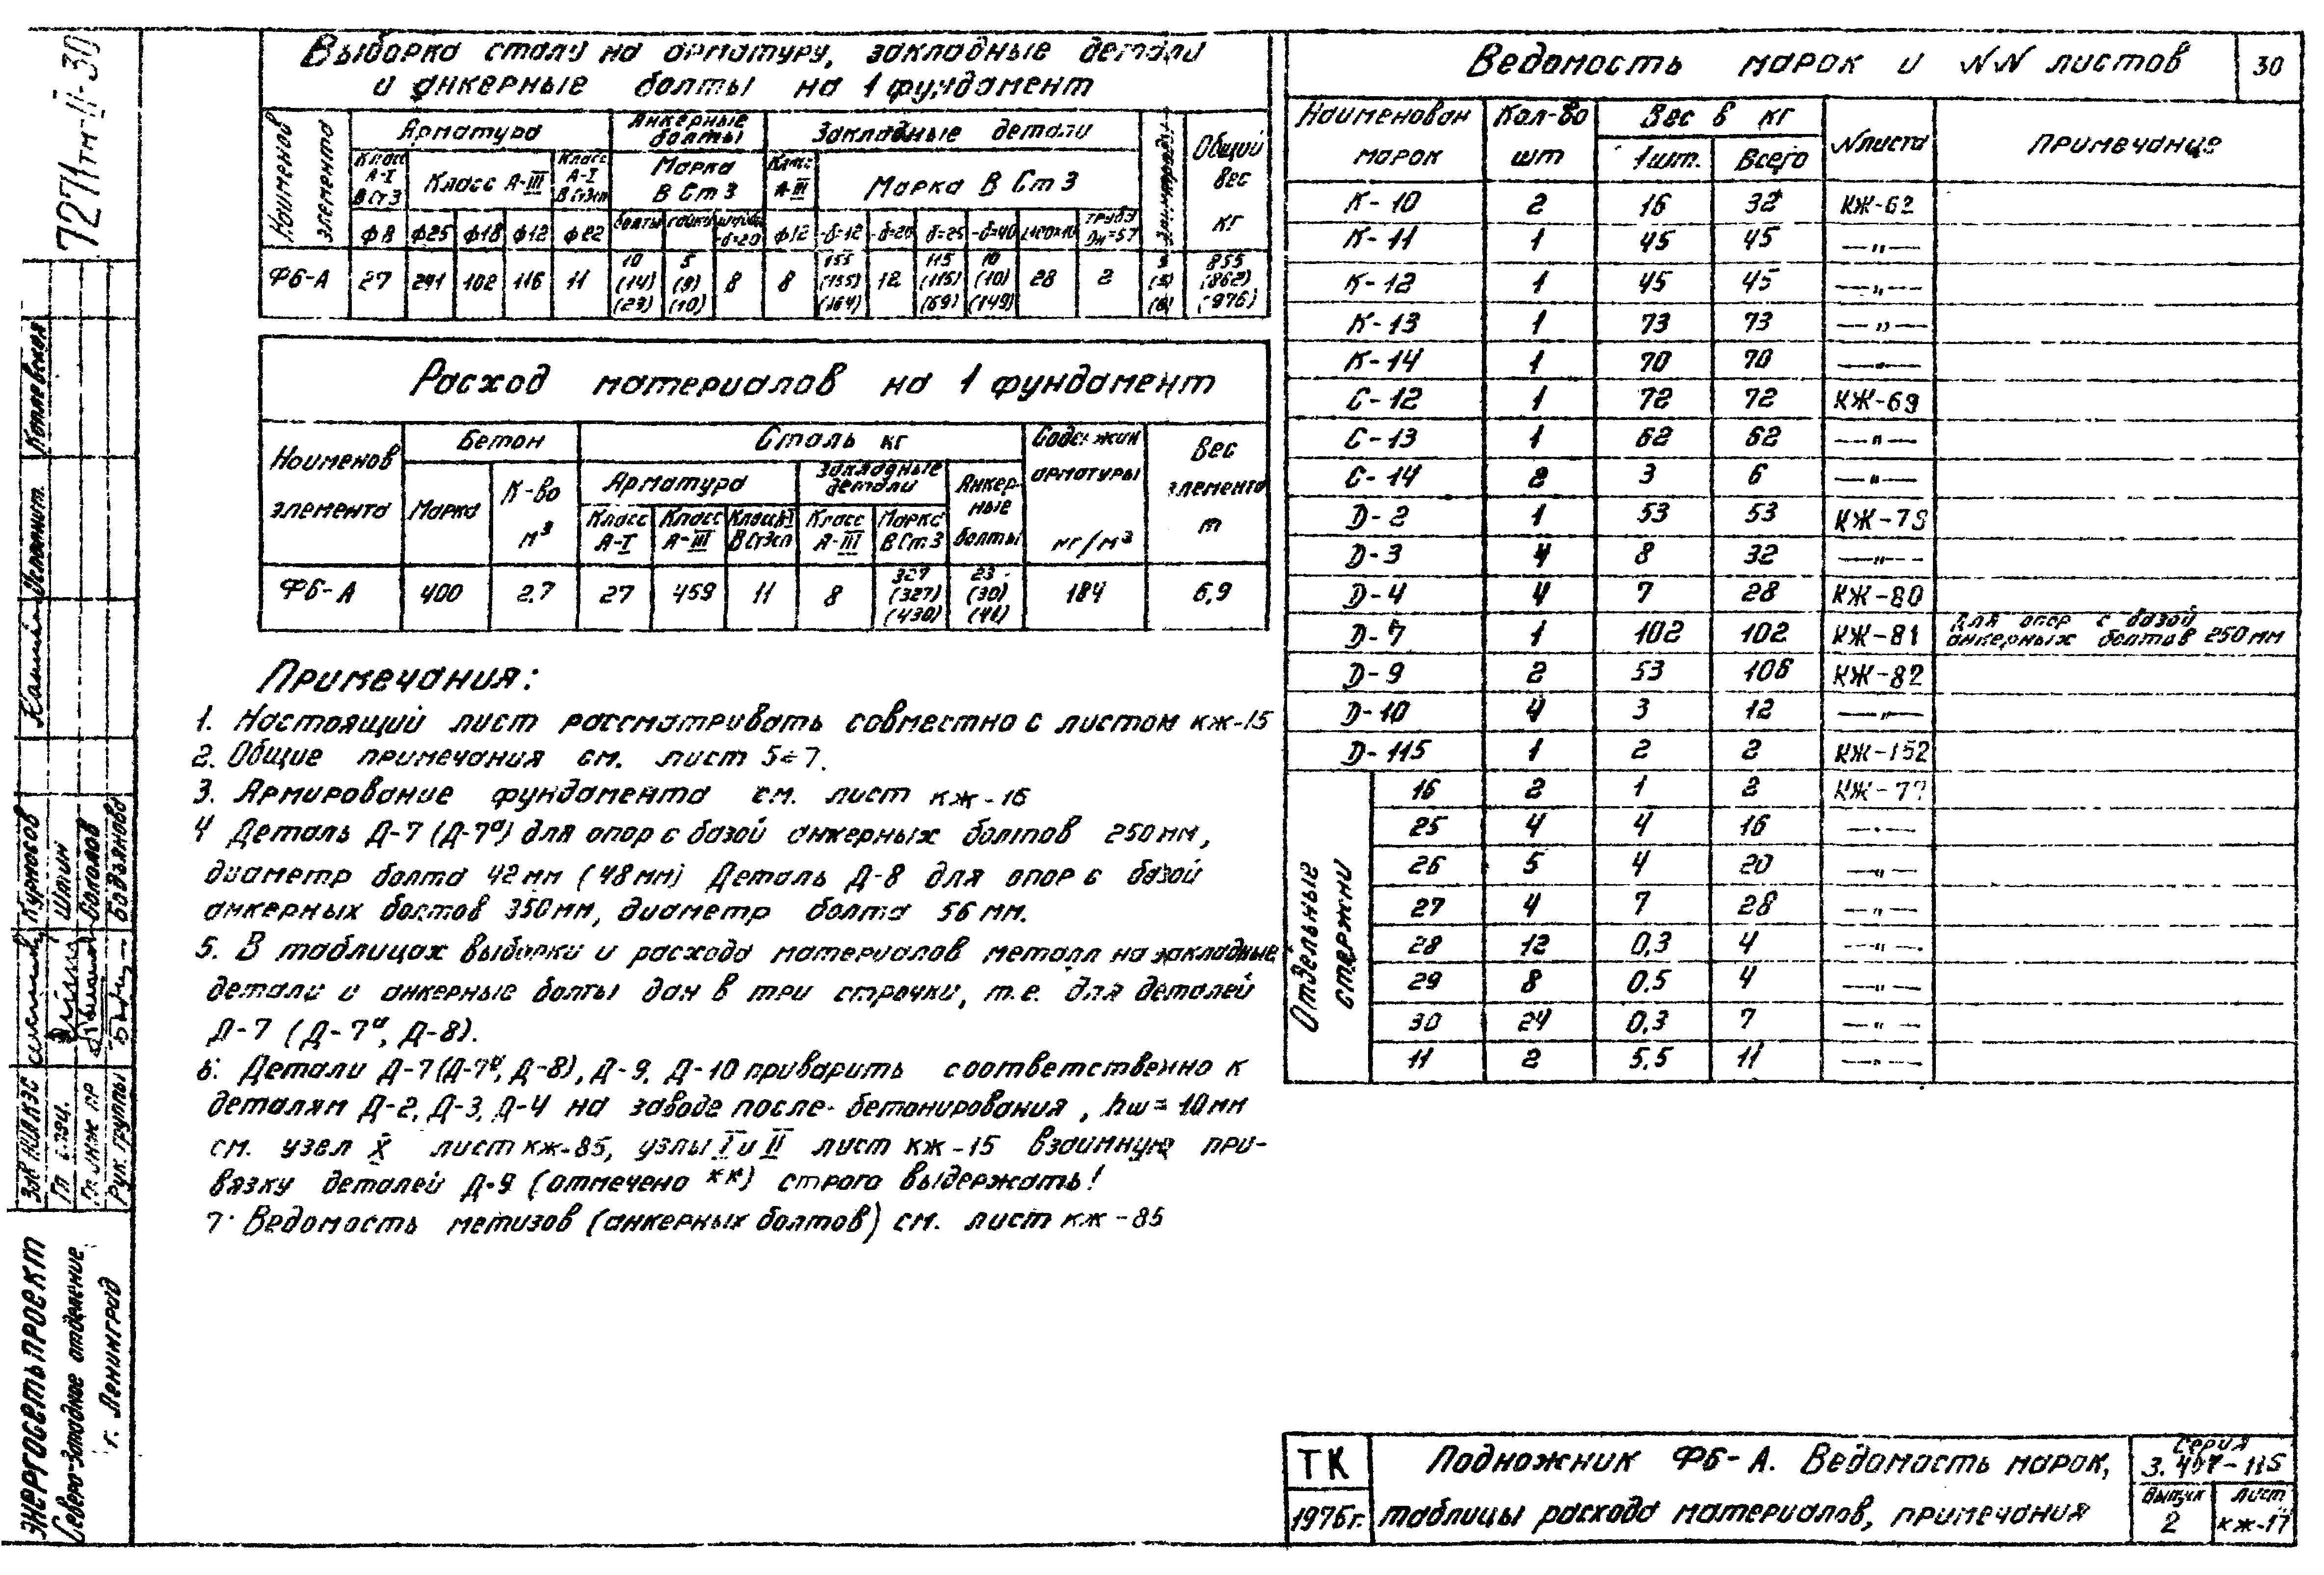 Выборка стали на арматуру, закладные детали
и анкерные болты на 1 фундамент
Наименов элемента
Арматура
Анкерные болты
Закладные детали
Общий вес кг
Класс А-I ВСт3
Класс А-III
Класс А-I ВСт3сп
Марка ВСт3
Класс А-III
Марка ВСт3
ф8 ф25 ф18 ф12 ф22 болты гайки шайбы -δ=20 ф12 -δ=12 -δ=20 δ=25 -δ=40 труба Dн=57
Ф6-А 27 241 102 116 11 10 (14) (29) 5 (9) (10) 8 8 155 (155) (164) 12 115 (115) (69) 10 (10) (149) 28 2 855 (862) (976)
Расход материалов на 1 фундамент
Наименов элемента
Бетон
Сталь кг
Содержан арматуры кг/м³
Вес элемента т
Марка
К-во м³
Арматура
Закладные детали
Анкерные болты
Класс А-I
Класс А-III
Класс А-I ВСт3сп
Класс А-III
Марка ВСт3
Ф6-А 400 2.7 27 459 11 8 327 (327) (430) 23 (30) 184 6,9
Примечания:
1. Настоящий лист рассматривать совместно с листом КЖ-15
2. Общие примечания см. лист 5÷7.
3. Армирование фундамента см. лист КЖ-16
4 Деталь Д-7 (Д-7ª) для опор с базой анкерных болтов 250 мм,
диаметр болта 42 мм (48 мм) Деталь Д-8 для опор с базой
анкерных болтов 350 мм, диаметр болта 56 мм.
5. В таблицах выборки и расхода материалов металл на закладные
детали и анкерные болты дан в три строчки, т.е. для деталей
Д-7 (Д-7ª, Д-8).
6. Детали Д-7(Д-7ª, Д-8), Д-9, Д-10 приварить соответственно к
деталям Д-2, Д-3, Д-4 на заводе после бетонирования, hш=10мм
см. узел X лист КЖ-85, узлы I и II лист КЖ-15 взаимную при-
вязку деталей Д-9 (отмечено **) строго выдержать!
7. Ведомость метизов (анкерных болтов) см. лист КЖ-85
Ведомость марок и NN листов
30
Наименован марок
Кол-во шт
Вес в кг
1шт. Всего
N листа
Примечание
К-10 2 16 32 КЖ-62
К-11 1 45 45 —„—
К-12 1 45 45 —„—
К-13 1 73 73 —„—
К-14 1 70 70 —„—
С-12 1 72 72 КЖ-69
С-13 1 62 62 —„—
С-14 2 3 6 —„—
D-2 1 53 53 КЖ-79
D-3 4 8 32 —„—
D-4 4 7 28 КЖ-80
D-7 1 102 102 КЖ-81 Для опор с базой анкерных болтов 250 мм
D-9 2 53 106 КЖ-82
D-10 4 3 12 —„—
D-115 1 2 2 КЖ-152
Отдельные стержни
16 2 1 2 КЖ-77
25 4 4 16 —„—
26 5 4 20 —„—
27 4 7 28 —„—
28 12 0,3 4 —„—
29 8 0,5 4 —„—
30 24 0,3 7 —„—
11 2 5,5 11 —„—
ТК
1976г.
Подножник Ф6-А. Ведомость марок,
таблицы расхода материалов, примечания
Серия
3.407-115
Выпуск
2
Лист
КЖ-17
7271тм-II-30
Котлевская
Курносов
Шпин
Соколов
ЭНЕРГОСЕТЬПРОЕКТ
Северо-Западное отделение
г. Ленинград
Гл. инж. пр
Рук. группы